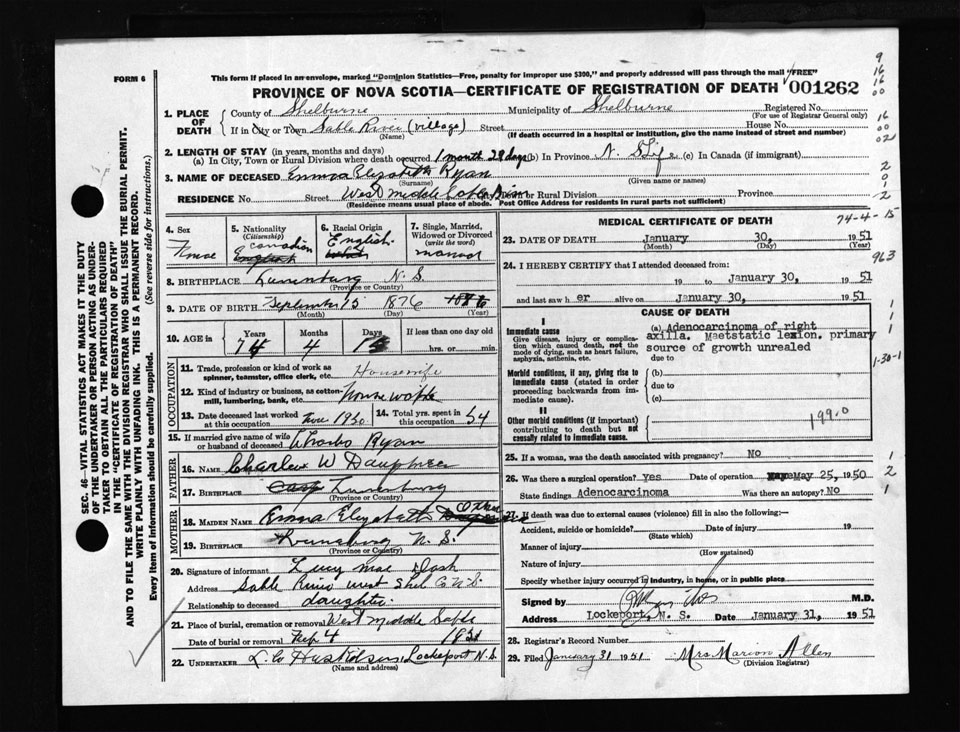 FORM 6
This form if placed in an envelope, marked "Dominion Statistics—Free, penalty for improper use $300," and properly addressed will pass through the mail "FREE"
PROVINCE OF NOVA SCOTIA—CERTIFICATE OF REGISTRATION OF DEATH 001262
1. PLACE OF DEATH
County of Shelburne Municipality of Shelburne Registered No.
(For use of Registrar General only)
If in City or Town Sable River (village) Street House No.
(Name) (If death occurred in a hospital or institution, give the name instead of street and number)
2. LENGTH OF STAY (in years, months and days)
(a) In City, Town or Rural Division where death occurred 1 month 28 days (b) In Province N. S Life (c) In Canada (if immigrant)
3. NAME OF DECEASED Emma Elizabeth Ryan
(Surname) (Given name or names)
RESIDENCE No Street West middle Sable or Rural Division Province
(Residence means usual place of abode. Post Office Address for residents in rural parts not sufficient)
4. Sex
Female
5. Nationality
(Citizenship)
Canadian
English
6. Racial Origin
English
7. Single, Married, Widowed or Divorced
(write the word)
married
8. BIRTHPLACE Lunenburg N.S.
(Province or Country)
9. DATE OF BIRTH September 15 1876
(Month) (Day) (Year)
10. AGE in
Years 74
Months 4
Days 15
If less than one day old
hrs. or min.
OCCUPATION
11. Trade, profession or kind of work as spinner, teamster, office clerk, etc. Housewife
12. Kind of industry or business, as cotton-mill, lumbering, bank, etc.
13. Date deceased last worked at this occupation 1950
14. Total yrs. spent in 54
15. If married give name of wife or husband of deceased Ryan
FATHER
16. NAME Charles W Dauphnee
17. BIRTHPLACE Lunenburg
(Province or Country)
MOTHER
18. MAIDEN NAME Emma Elizabeth
19. BIRTHPLACE N. S.
(Province or Country)
20. Signature of informant Lucy Mae Dash
Address Sable River west Shel Co N.S.
Relationship to deceased daughter
21. Place of burial, cremation or removal West Middle Sable
Date of burial or removal Feb 4 1951
22. UNDERTAKER Lockeport N.S.
(Name and address)
MEDICAL CERTIFICATE OF DEATH
74-4-15
23. DATE OF DEATH January 30, 1951
(Month) (Day) (Year)
24. I HEREBY CERTIFY that I attended deceased from:
19 to January 30, 1951
and last saw h er alive on January 30, 1951
963
CAUSE OF DEATH
I
Immediate cause
Give disease, injury or complication which caused death, not the mode of dying, such as heart failure, asphyxia, asthenia, etc.
(a) Adenocarcinoma of right
axilla. Maetstatic lexion. primary
source of growth unrealed
due to
Morbid conditions, if any, giving rise to immediate cause (stated in order proceeding backwards from immediate cause).
(b)
due to
(c)
1-30-1
II
Other morbid conditions (if important) contributing to death but not causally related to immediate cause.
199.0
25. If a woman, was the death associated with pregnancy? No
26. Was there a surgical operation? Yes Date of operation May 25, 1950
State findings Adenocarcinoma Was there an autopsy? No
27. If death was due to external causes (violence) fill in also the following:—
Accident, suicide or homicide? Date of injury 19
(State which)
Manner of injury
(How sustained)
Nature of injury
Specify whether injury occurred in industry, in home, or in public place
Signed by M.D.
Address Lockeport, N. S. Date January 31, 1951
28. Registrar's Record Number
29. Filed January 31 1951 Mrs. Marion Allen
(Division Registrar)
SEC. 46—VITAL STATISTICS ACT MAKES IT THE DUTY
OF THE UNDERTAKER OR PERSON ACTING AS UNDER-
TAKER TO OBTAIN ALL THE PARTICULARS REQUIRED
IN THE "CERTIFICATE OF REGISTRATION OF DEATH"
AND TO FILE THE SAME WITH THE DIVISION REGISTRAR WHO SHALL ISSUE THE BURIAL PERMIT.
WRITE PLAINLY WITH UNFADING INK. THIS IS A PERMANENT RECORD.
Every item of information should be carefully supplied. (See reverse side for instructions).
9
16
16
00
16
00
02
2
0
1
2
1
1
1
1
2
1